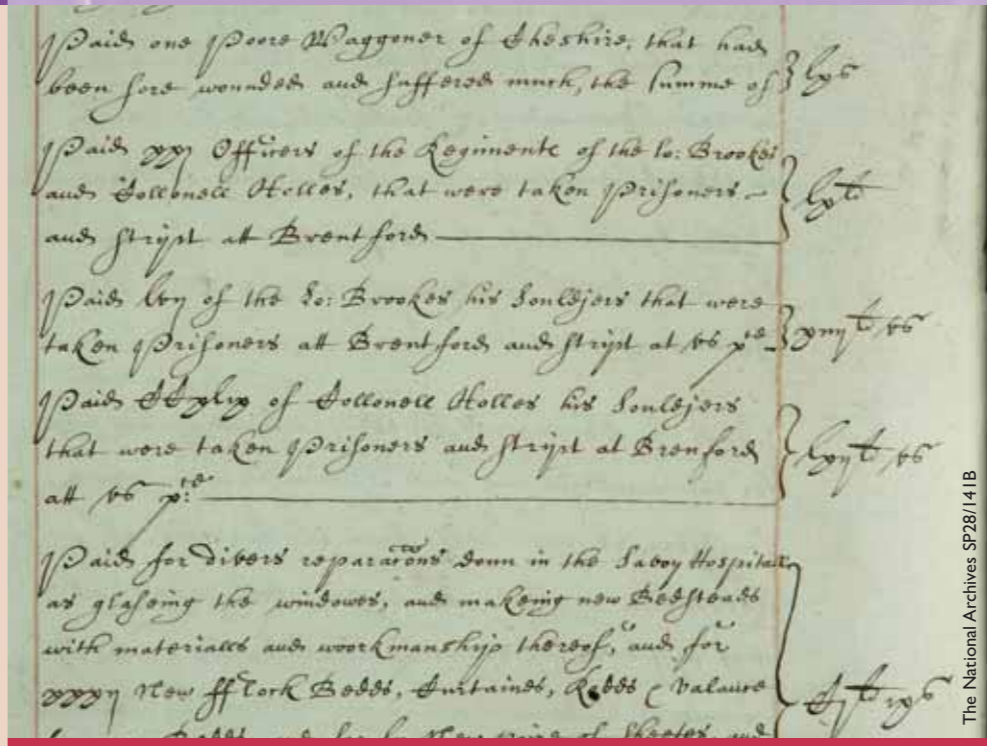 Paid one Poore Waggoner of Cheshire, that had
been sore wounded and suffered much, the summe of lxs
Paid xxj Officers of the Regimente of the lo: Brookes
and Collonell Holles, that were taken Prisoners
and stript att Brentford lxli
Paid lvij of the Lo: Brookes his Souldjers that were
taken Prisoners att Brentford and stript at vs pce xiiijli vs
Paid CCxlix of Collonell Holles his Souldjers
that were taken Prisoners and stript at Brenford lxijli vs
att vs pce
Paid for divers reparacons donn in the Savoy Hospitall
as glaseing the windowes, and makeing new Bedsteads
with materialls and woorkmanship thereof, and for
xxxij New fflock Bedds, Curtaines, Rodds & Valance
Bedds and New paire of Sheetes, and
The National Archives SP28/141B